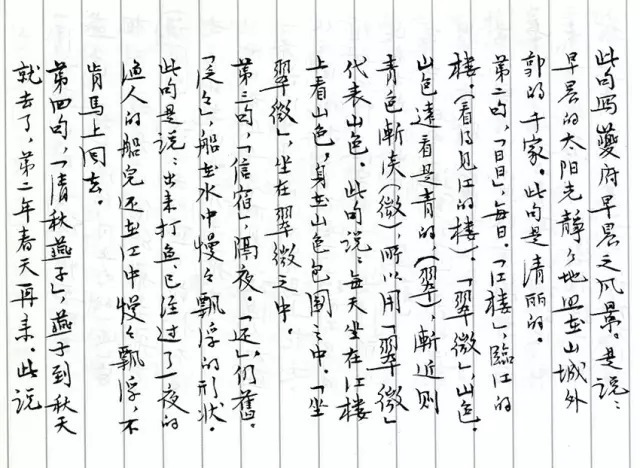 此句写夔府早晨之风景。是说：
早晨的太阳光静々地照在山城外
郭的千家。此句是清丽的。
第二句，「日日」，每日。「江楼」，临江的
楼。（看得见江的楼）。「翠微」，山色。
山色远看是青的（翠），渐近则
青色渐淡（微），所以用「翠微」
代表山色。此句说：每天坐在江楼
上看山色，身在山色包围之中。「坐
翠微」，坐在翠微之中。
第三句，「信宿」，隔夜。「还」，仍旧。
「泛々」，船在水中慢々飘浮的形状。
此句是说：出来打鱼，已经过了一夜的
渔人的船，还在江中慢々飘浮，不
肯马上回去。
第四句，「清秋燕子」，燕子到秋天
就去了，第二年春天再来。此说